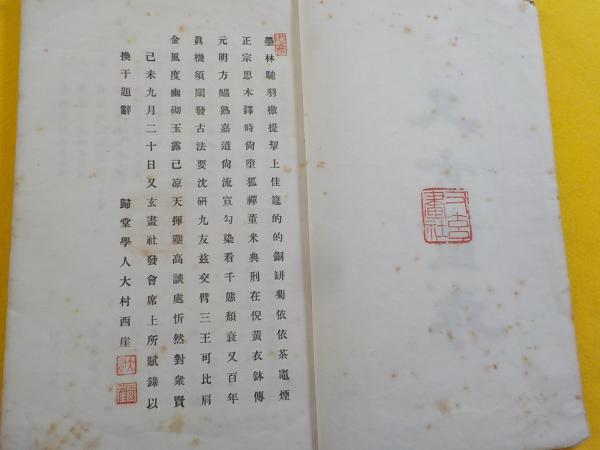 墨林馳羽檄提挈上佳筵的的銅缾菊依依茶竈煙
正宗思木鐸時尙墮狐禪董米典刑在倪黃衣鉢傳
元明方醞熟嘉道尙流宣勾染看千態頹衰又百年
眞機須闡發古法要沈硏九友玆交臂三王可比肩
金風度幽砌玉露已凉天揮麈高談處忻然對衆賢
己未九月二十日又玄畫社發會席上所賦錄以
換于題辭
歸堂學人大村西崖
又玄畫社